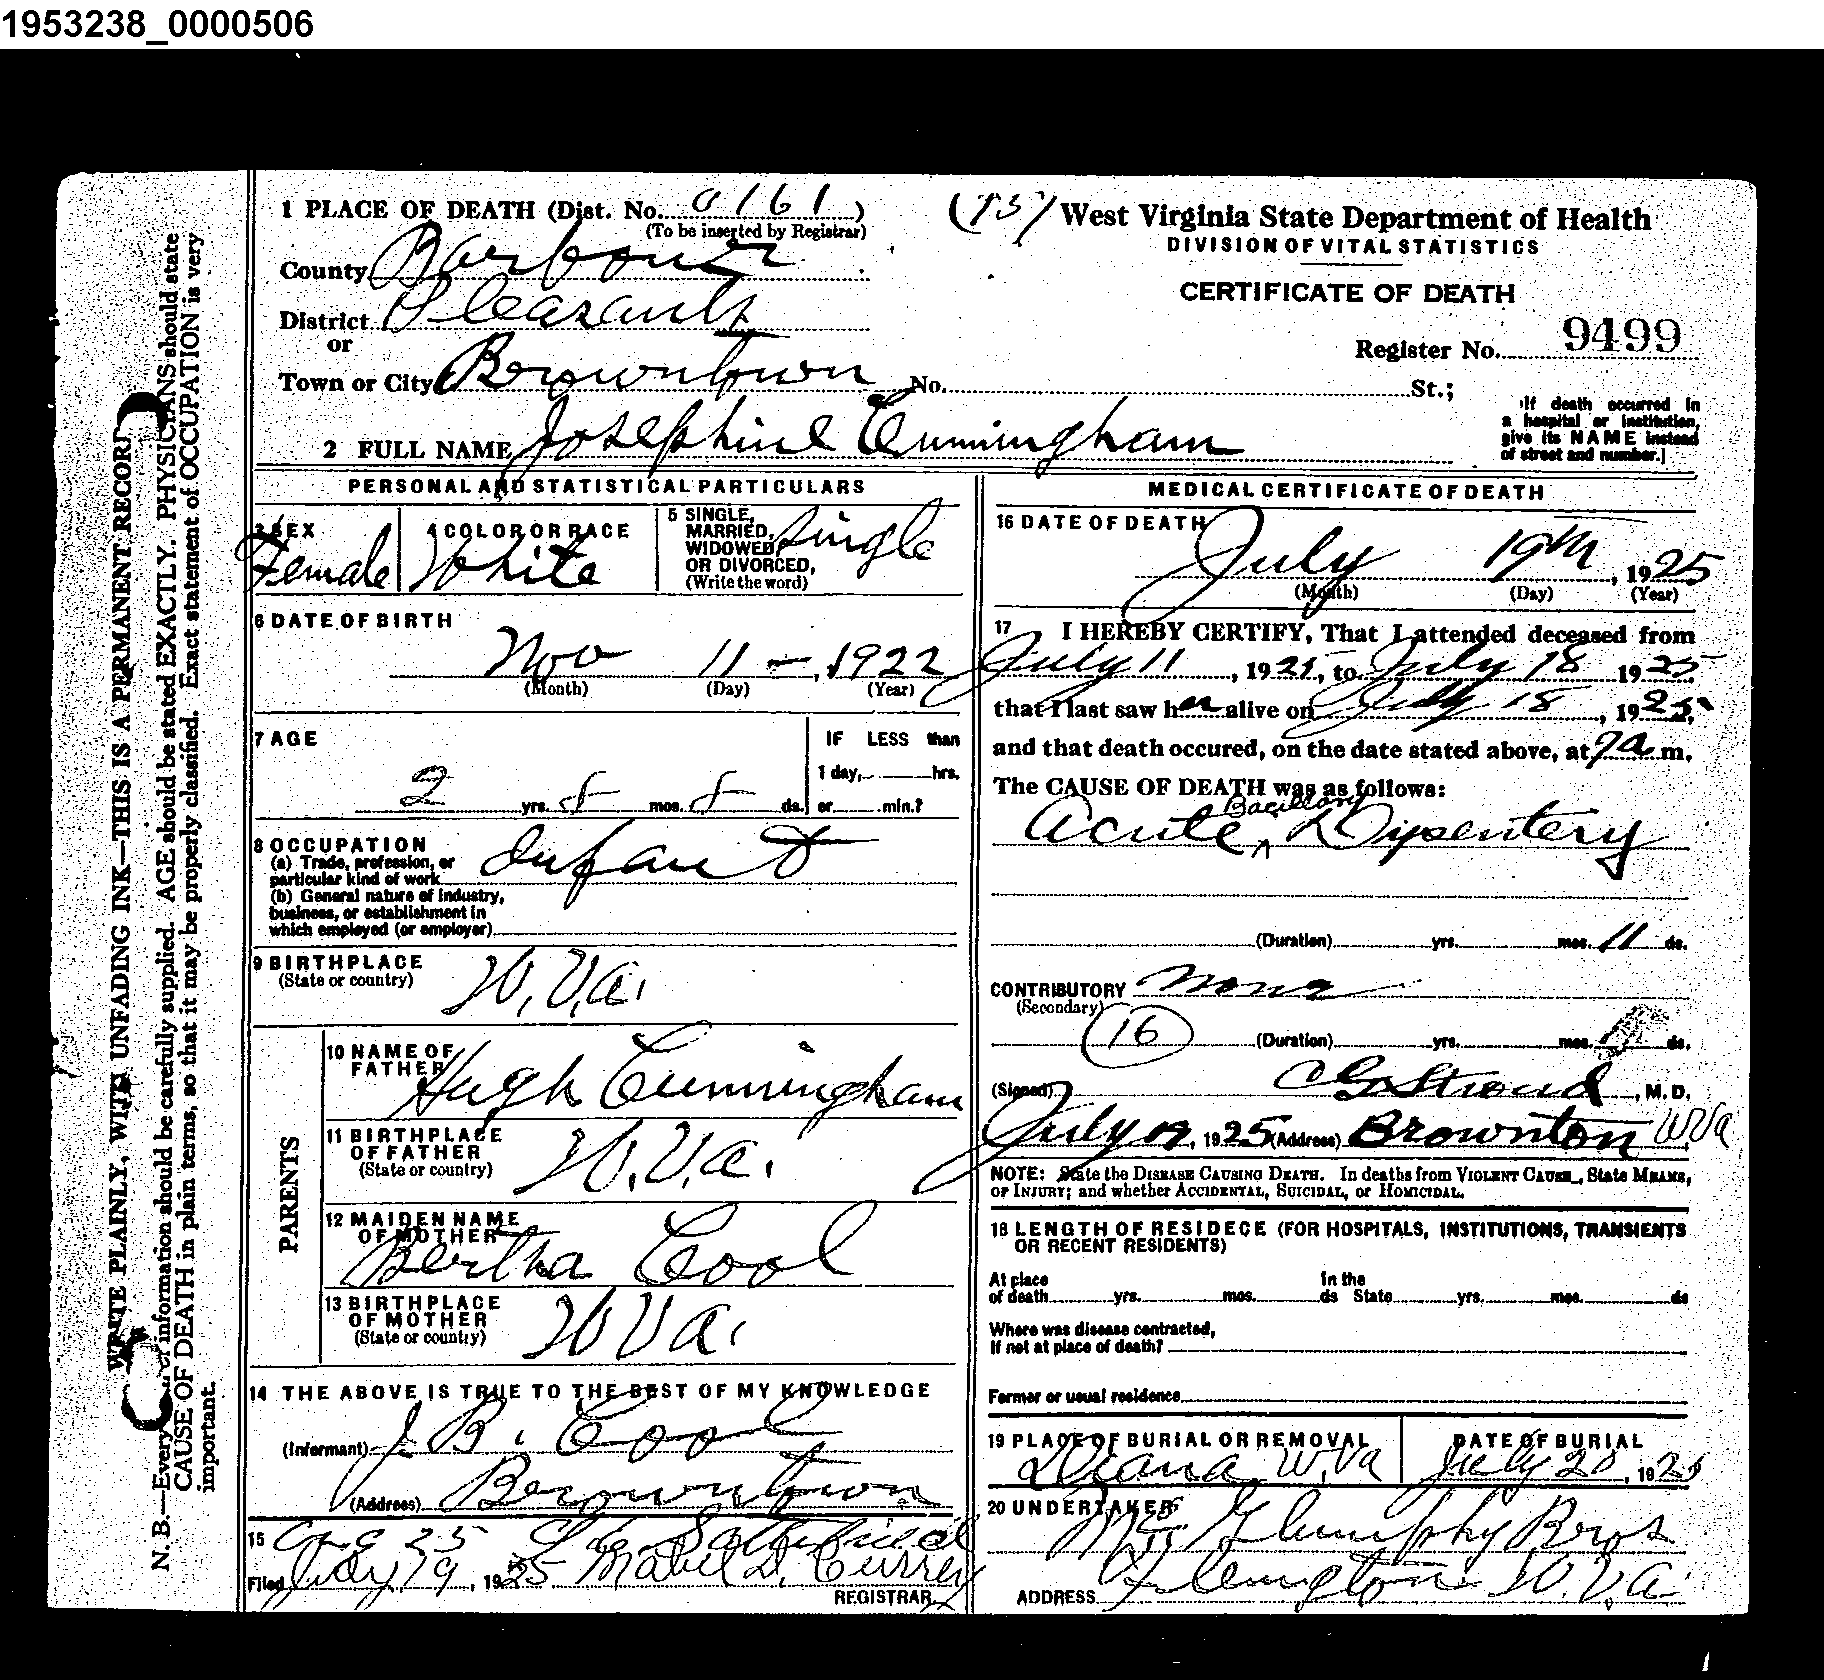 1953238_0000506
1 PLACE OF DEATH (Dist. No. 0161)
(To be inserted by Registrar)
County Barbour
District Pleasants
or
Town or City Browntown No. St.;
2 FULL NAME Josephine Cunningham
West Virginia State Department of Health
DIVISION OF VITAL STATISTICS
CERTIFICATE OF DEATH
Register No. 9499
If death occurred in
a hospital or institution,
give its NAME instead
of street and number.]
WRITE PLAINLY, WITH UNFADING INK—THIS IS A PERMANENT RECORD
N. B.—Every information should be carefully supplied. AGE should be stated EXACTLY. PHYSICIANS should state
CAUSE OF DEATH in plain terms, so that it may be properly classified. Exact statement of OCCUPATION is very
important.
PERSONAL AND STATISTICAL PARTICULARS
3 SEX
Female
4 COLOR OR RACE
White
5 SINGLE,
MARRIED,
WIDOWED,
OR DIVORCED,
(Write the word)
Single
6 DATE OF BIRTH
Nov 11 - , 1922
(Month) (Day) (Year)
7 AGE
2 yrs. 8 mos. 8 ds.
IF LESS than
1 day, hrs.
or min.?
8 OCCUPATION
(a) Trade, profession, or
particular kind of work
Infant
(b) General nature of industry,
business, or establishment in
which employed (or employer)
9 BIRTHPLACE
(State or country)
W. Va.
PARENTS
10 NAME OF
FATHER
Hugh Cunningham
11 BIRTHPLACE
OF FATHER
(State or country)
W. Va.
12 MAIDEN NAME
OF MOTHER
Bertha Cool
13 BIRTHPLACE
OF MOTHER
(State or country)
W Va.
14 THE ABOVE IS TRUE TO THE BEST OF MY KNOWLEDGE
(Informant) J. B. Cool
(Address) Browntown
15
Filed July 19, 1925 Mabel D. Currey
REGISTRAR
MEDICAL CERTIFICATE OF DEATH
16 DATE OF DEATH
July 19th, 1925
(Month) (Day) (Year)
17 I HEREBY CERTIFY, That I attended deceased from
July 11, 1925, to July 18 1925
that I last saw her alive on July 18, 1925,
and that death occured, on the date stated above, at 7a m.
The CAUSE OF DEATH was as follows:
Acute Bacillary Dysentery
(Duration) yrs. mos. 11 ds.
CONTRIBUTORY None
(Secondary)
16 (Duration) yrs. mos. ds.
(Signed) C G Stroud, M. D.
July 19, 1925 (Address) Brownton W.Va
NOTE: State the DISEASE CAUSING DEATH. In deaths from VIOLENT CAUSE, State MEANS,
OF INJURY; and whether ACCIDENTAL, SUICIDAL, or HOMICIDAL.
18 LENGTH OF RESIDECE (FOR HOSPITALS, INSTITUTIONS, TRANSIENTS
OR RECENT RESIDENTS)
At place
of death yrs. mos. ds
In the
State yrs. mos. ds
Where was disease contracted,
If not at place of death?
Former or usual residence
19 PLACE OF BURIAL OR REMOVAL
Diana W.Va
DATE OF BURIAL
July 20, 1925
20 UNDERTAKER
Bros
ADDRESS Flemington W. Va